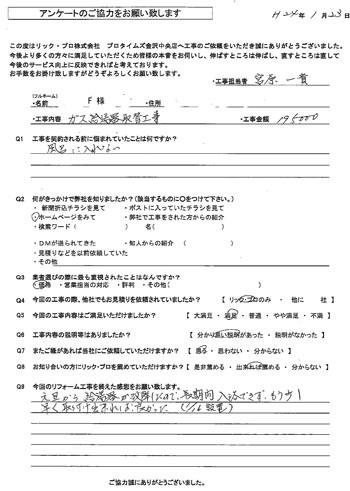 アンケートのご協力をお願い致します
H24年1月23日
この度はリック・プロ株式会社 プロタイムズ金沢中央店へ工事のご依頼をいただき誠にありがとうございました。
今後より多くの方々に満足していただくため皆様の本音をお伺いし、伸ばすところは伸ばし、直すところは直して
今後のサービス向上に反映できればと考えております。
お手数をお掛け致しますがどうぞよろしくお願い致します。
・工事担当者 宮原 一貴
(フルネーム)
・名前 F 様 ・住所
・工事内容 ガス給湯器取替工事 ・工事金額 195000
Q1 工事を契約される前に悩まれていたことは何ですか?
風呂に入れない
Q2 何がきっかけで弊社を知りましたか?(該当するものに○をつけて下さい。)
・新聞折込チラシを見て ・ポストに入っていたチラシを見て
・ホームページをみて ・弊社で工事をされた方からの紹介
・検索ワード( ) 名( )
・DMが送られてきた ・知人からの紹介( )
・見積りなどを以前依頼していた
・その他
Q3 業者選びの際に最も重視されたことはなんですか?
・価格 ・営業担当の対応 ・評判 ・その他( )
Q4 今回の工事の際、他社でもお見積りを依頼されていましたか? 【 リック・プロのみ ・ 他に 社 】
Q5 今回の工事内容はご満足いただけましたか? 【 大満足 ・ 満足 ・ 普通 ・ やや満足 ・ 不満 】
Q6 工事内容の説明等はありましたか? 【 分かり易い説明があった ・ 説明がなかった 】
Q7 またご縁があれば当社にご依頼していただけますか? 【 思う ・ 思わない ・ 分からない 】
Q8 お知り合いの方にリック・プロを薦めていただけますか? 【 是非薦める ・ 出来れば薦める ・ 分からない 】
Q9 今回のリフォーム工事を終えた感想をお願い致します。
元旦から給湯器が故障したので、長期間入浴できず、もう少し
早く取り付け出来れば良かった (1/16 設置)
ご協力誠にありがとうございました。